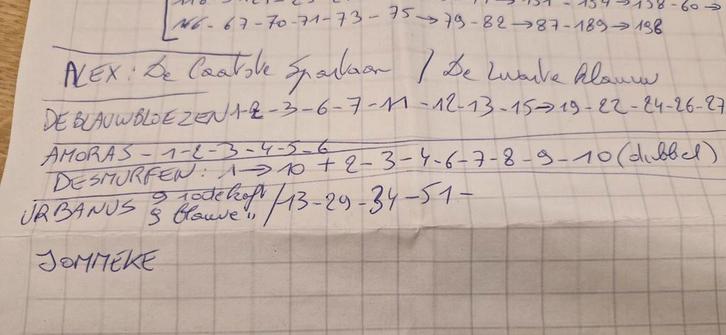 131 - 134 → 138 - 60 →
66 - 67 - 70 - 71 - 73 - 75 → 79 - 82 → 87 - 189 → 198
ALEX: De Laatste Spartaan / De Zwarte klauw
DE BLAUWBLOEZEN 1-2-3-6-7-11-12-13-15→19-22-24-26-27
AMORAS - 1-2-3-4-5-6
DE SMURFEN: 1 → 10 + 2-3-4-6-7-8-9-10 (dubbel)
URBANUS 9 rode kaft / 13-29-34-51-
9 blauwe "
JOMMEKE